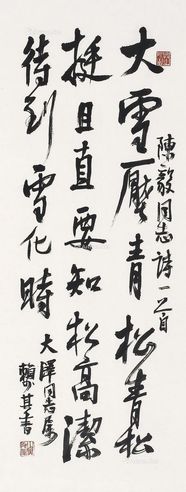 大雪壓青松青松
挺且直要知松高潔
待到雪化時
陳毅同志詩一首
大澤同志屬
賴少其書